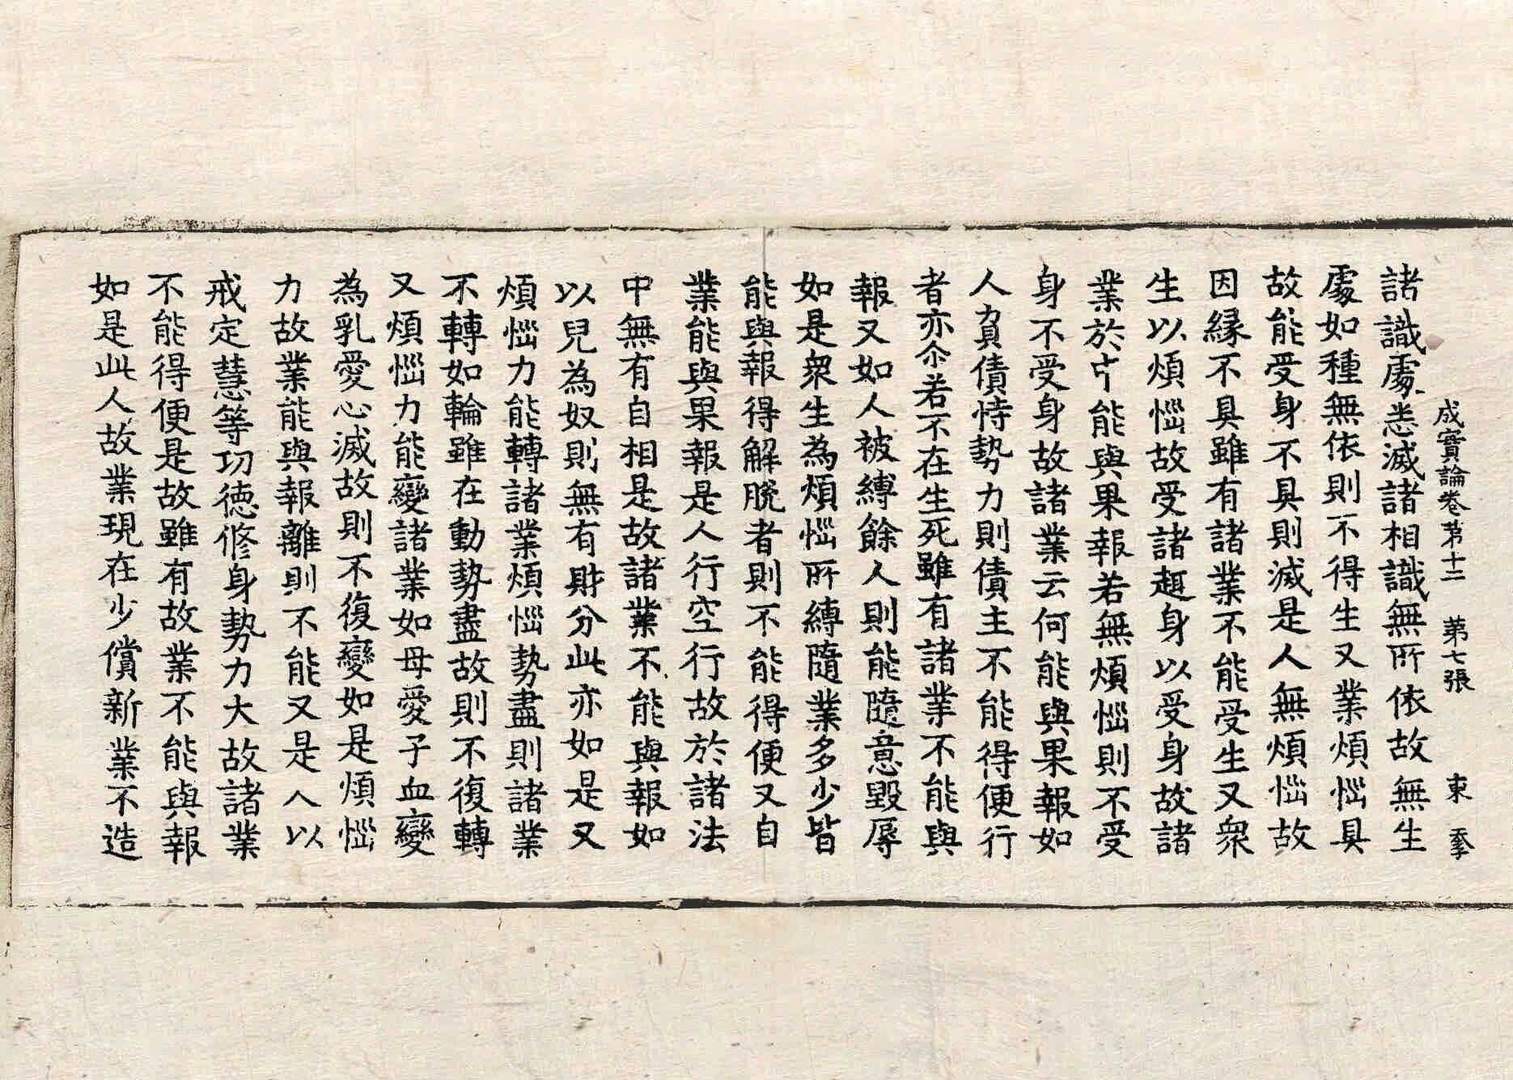 成實論卷苐十二 第七張 東 季
諸識處悉滅諸相識無所依故無生
處如種無依則不得生又業煩惱具
故能受身不具則滅是人無煩惱故
因縁不具雖有諸業不能受生又衆
生以煩惱故受諸趣身以受身故諸
業於中能與果報若無煩惱則不受
身不受身故諸業云何能與果報如
人負債恃勢力則債主不能得便行
者亦尒若不在生死雖有諸業不能與
報又如人被縛餘人則能隨意毀辱
如是衆生為煩惱所縛隨業多少皆
能與報得解脫者則不能得便又自
業能與果報是人行空行故於諸法
中無有自相是故諸業不能與報如
以兒為奴則無有財分此亦如是又
煩惱力能轉諸業煩惱勢盡則諸業
不轉如輪雖在動勢盡故則不復轉
又煩惱力能變諸業如母愛子血變
為乳愛心滅故則不復變如是煩惱
力故業能與報離則不能又是人以
戒定慧等功徳修身勢力大故諸業
不能得便是故雖有故業不能與報
如是此人故業現在少償新業不造